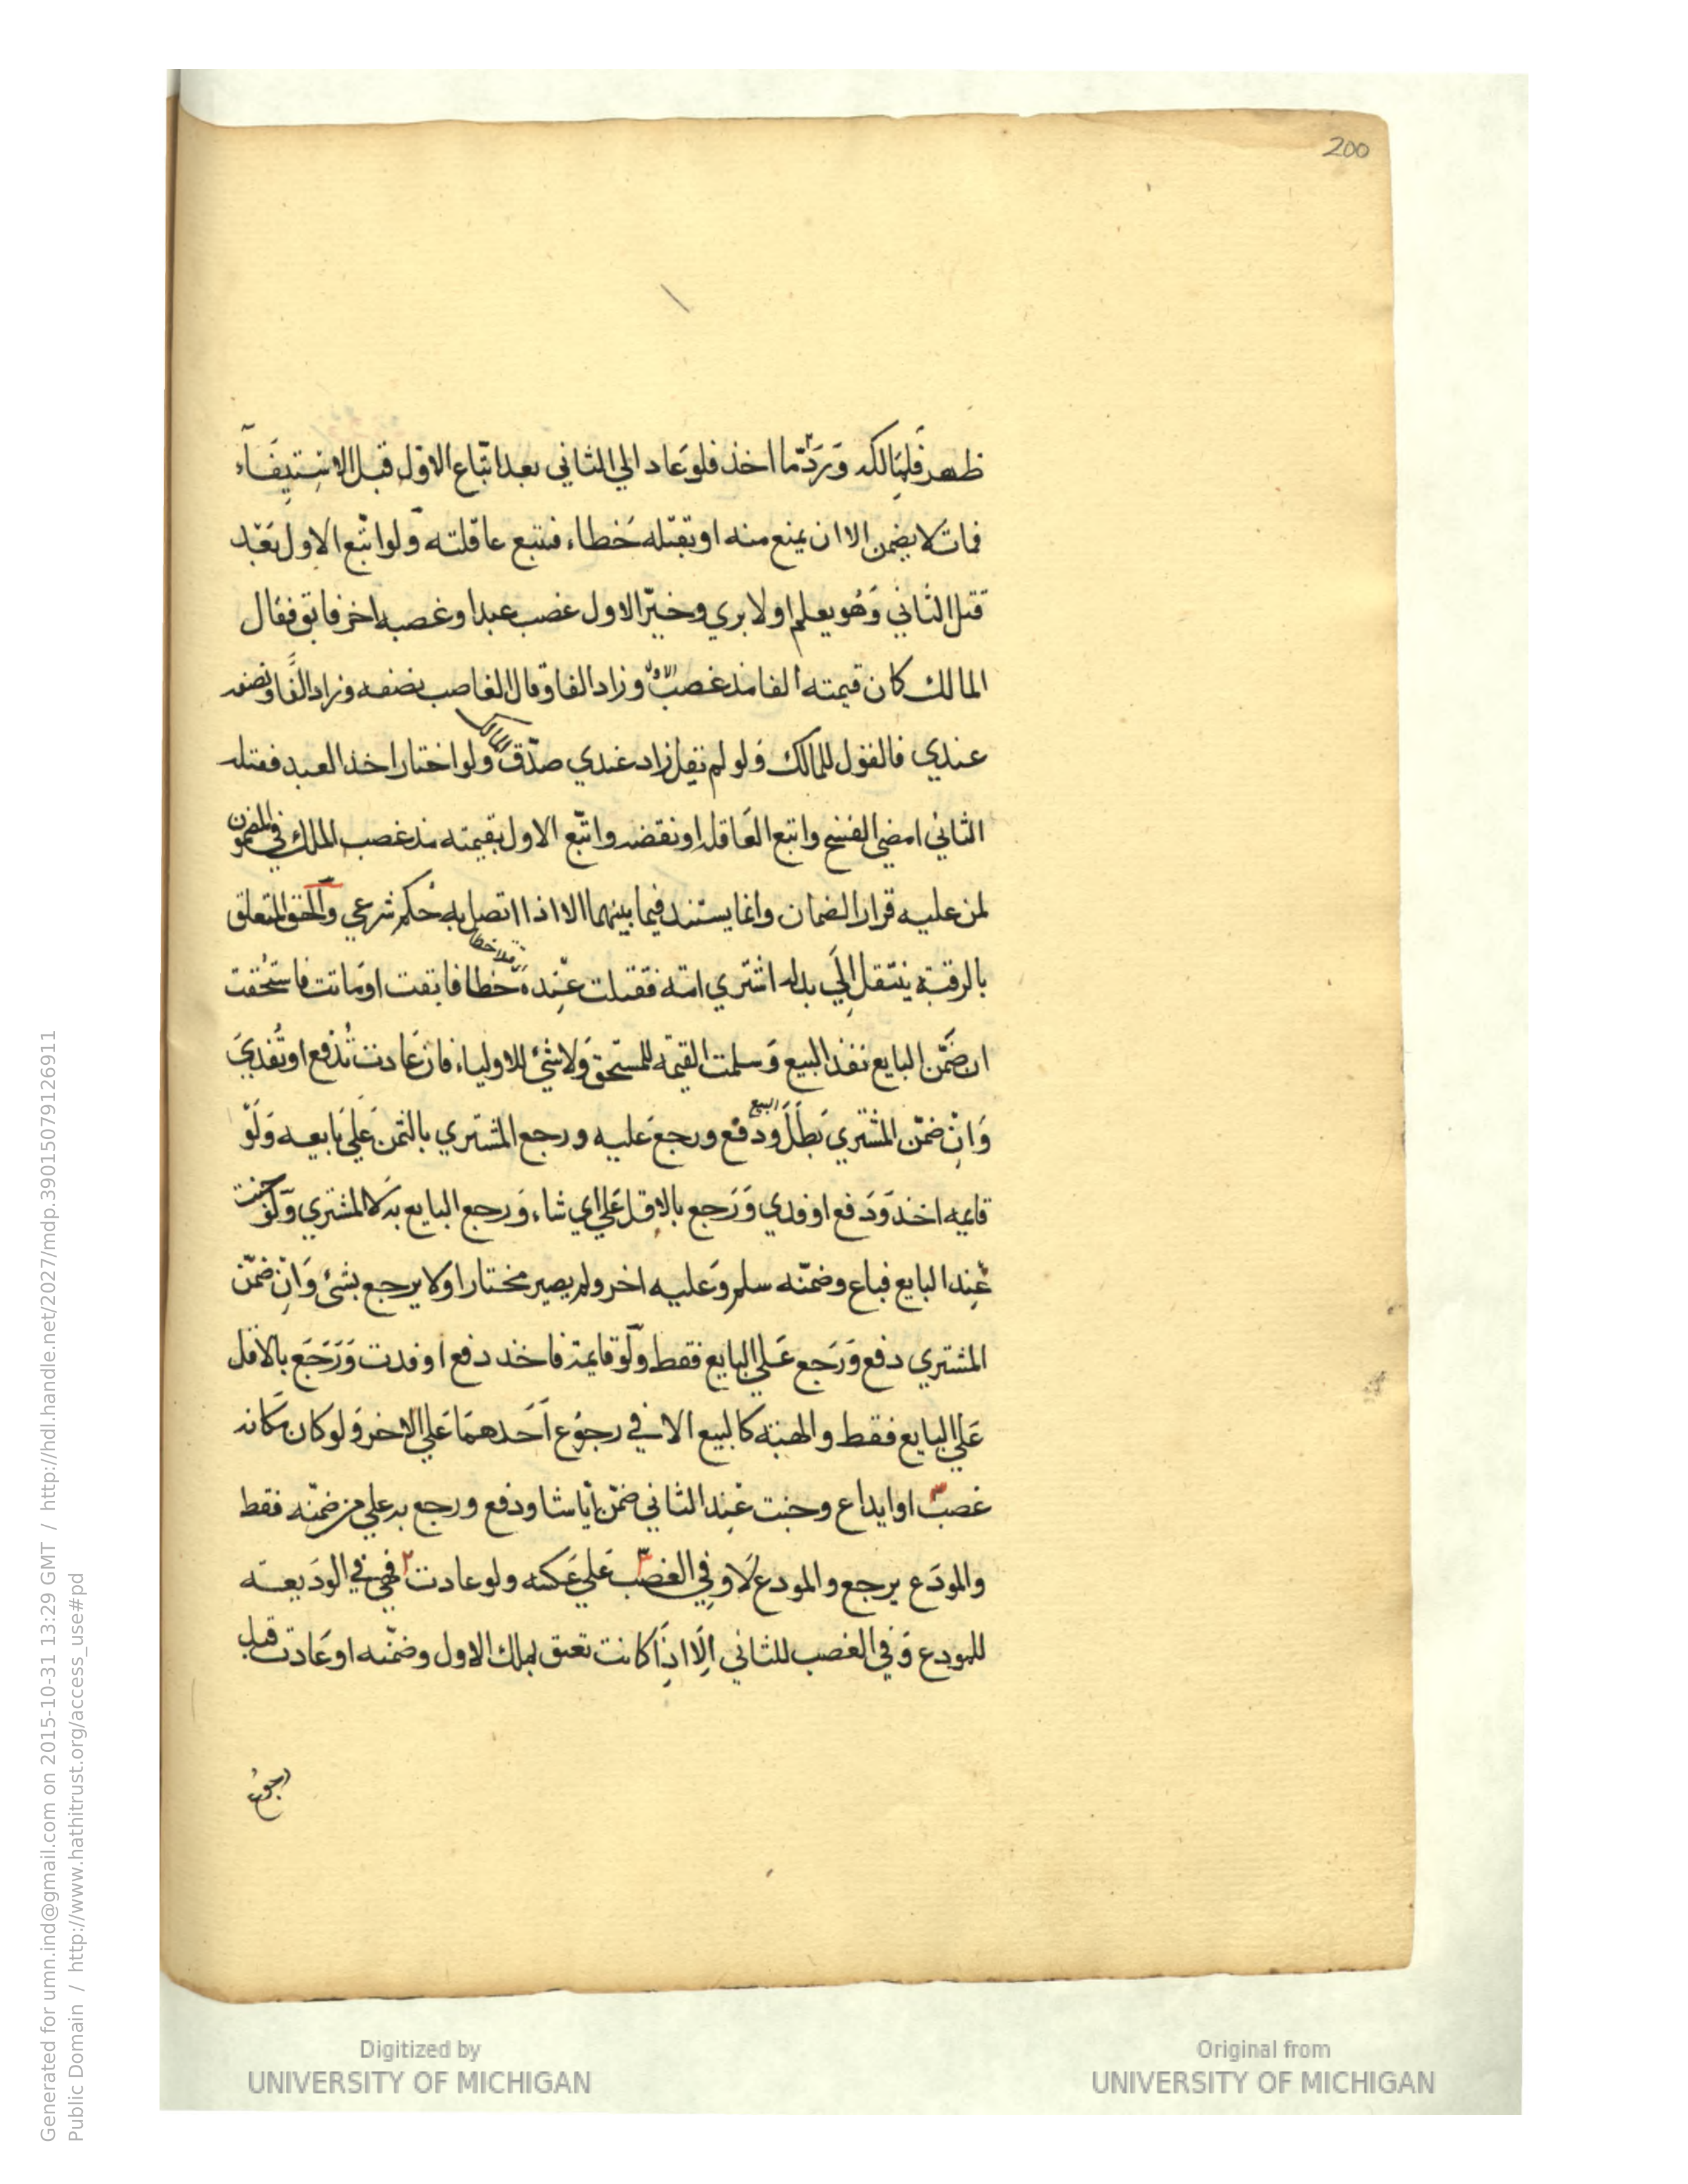 200
ظهر فلمالكه وَرَدّ ما اخذ فلو عَاد الي الثاني بعد اتباع الاوّل قبل الاسْتِيفَآء
فمات لا يضمن الا ان يمنع منه او يقتله خَطاء فتتبع عاقلته وَلو اتّبع الاول بَعْد
قتل الثاني وَهُو يعلم او لا بري وخيّر الاول غصب عبدا وغصبه اخر فابق فقال
المالك كان قيمته الفا مذ غصب وزاد الفا وقال الغاصب نصفه وزاد الفًا ونصفه
عندي فالقول للمالك وَلو لم يقل زاد عندي صدّق ولو اختار اخذ العبد فقتله
الثاني امضي الفسخ واتبع العَاقلة او نقضه واتّبع الاول بقيمته مذ غصب الملك في المضمون
لمن عليه قرار الضمان وانما يستند فيما بينهما الا اذا اتصل به حُكم شرعي وَالحق المتعلق
بالرقبة ينتقل إلَي بدله اشتري امة فقتلت عِنده خطا فابقت او مَاتت فاستُحقت
ان ضَمّن البايع نفذ البيع وَسلمت القيمة للمستحق وَلا شيْ للاولياء فان عَادت تُدْفع او تُفْدي
وَانِ ضمّن المشتري بَطَلَ البيع وَدفع ورجع عَليه ورجع المشتري بالثمن عَلي بَايعه وَلَوْ
قايمه اخذ وَدَفع او فدي وَرَجع بالاقل عَلي اي شاء وَرجع البايع به لا المشتري وَلَو جنت
عِند البايع فباع وضمنّه سلم وَعليه اخر ولم يصير مختارا وَلا يرجع بشئ وَانِ ضمّن
المشتري دفع وَرَجع عَلي البايع فقط وَلَو قايمة فاخذ دفع او فدت وَرَجَع بالاقل
عَلي البايع فقط والهبة كالبيع الا في رجوُع اَحَدهمَا عَلي الاخر وَلو كان مكانه
غصبٌ او ايداع وجنت عِند الثاني ضمّن ايّا شا ودفع ورجع به علي من ضمّنه فقط
والمودَع يرجع والمودع لَا وفِي الغصب عَلي عَكسه ولو عادت فهي في الودَيعه
للمودع وَفي الغصب للثاني اِلّا اذَا كانت تعتق بملك الاول وضمّنه او عَادت قبل
رجوُع
Digitized by
UNIVERSITY OF MICHIGAN
Original from
UNIVERSITY OF MICHIGAN
Generated for umn.ind@gmail.com on 2015-10-31 13:29 GMT / http://hdl.handle.net/2027/mdp.39015079126911
Public Domain / http://www.hathitrust.org/access_use#pd